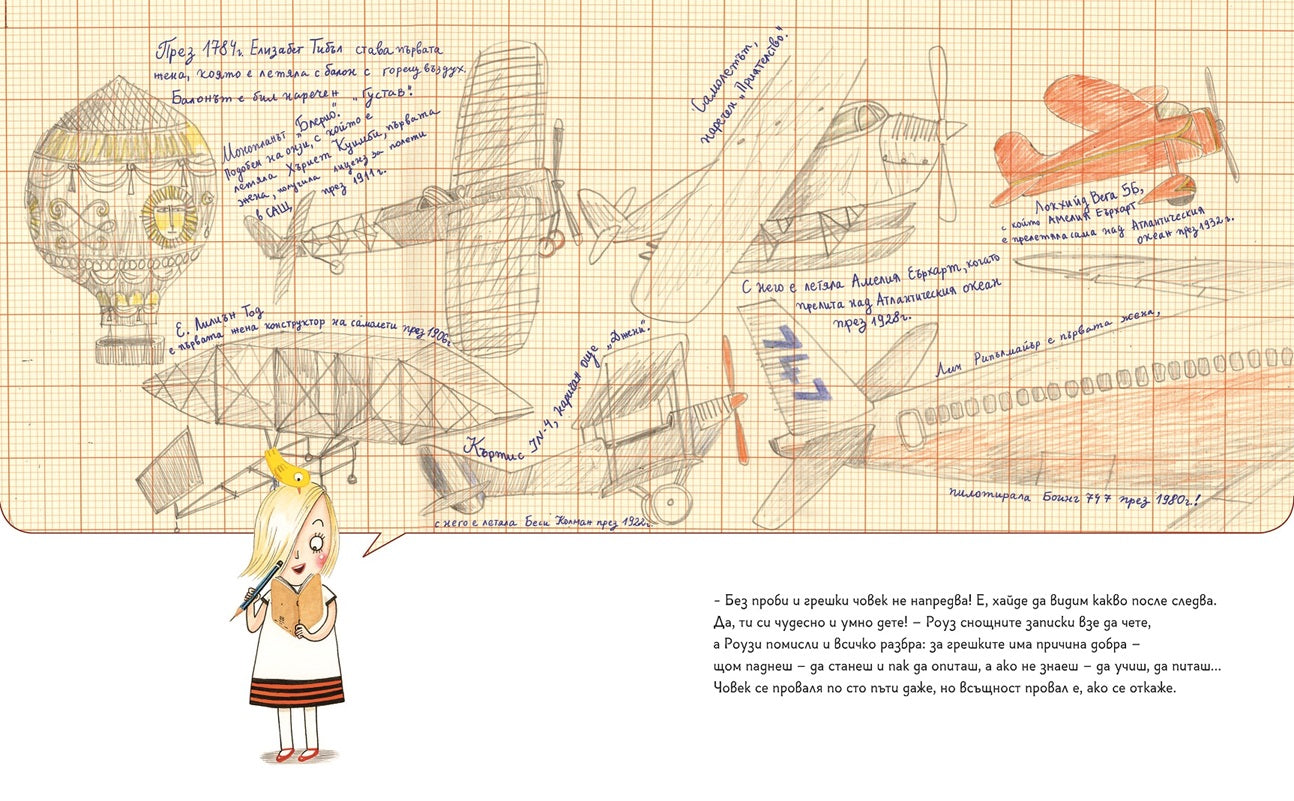 През 1784г. Елизабет Тибъл става първата
жена, която е летяла с балон с горещ въздух.
Балонът е бил наречен „Густав“.
Монопланът „Блерио“.
Подобен на онзи, с който е
летяла Хариет Куимби, първата
жена, получила лиценз за полети
в САЩ, през 1911г.
Самолетът,
наречен „Приятелство“.
С него е летяла Амелия Еърхарт, когато
прелита над Атлантическия океан
през 1928г.
Локхийд Вега 5Б,
с който Амелия Еърхарт
е прелетяла сама над Атлантическия
океан през 1932г.
Е. Лилиън Тод
е първата жена конструктор на самолети през 1906г.
Къртис JN-4, наричан още „Джени“.
с него е летяла Беси Колман през 1922г.
747
Лин Рипълмайър е първата жена,
пилотирала Боинг 747 през 1980г!
- Без проби и грешки човек не напредва! Е, хайде да видим какво после следва.
Да, ти си чудесно и умно дете! – Роуз снощните записки взе да чете,
а Роузи помисли и всичко разбра: за грешките има причина добра –
щом паднеш – да станеш и пак да опиташ, а ако не знаеш – да учиш, да питаш...
Човек се проваля по сто пъти даже, но всъщност провал е, ако се откаже.